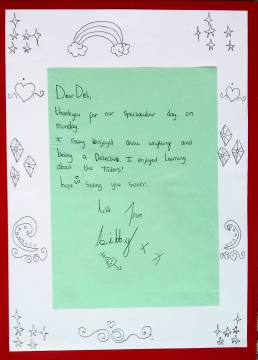 Dear Deb,
thankyou for our spectacular day on
monday.
I really enjoyed exploring and
being a Detective. I enjoyed Learning
about the Tudors!
hope Seeing you Soon!
Love From
Libby
x x